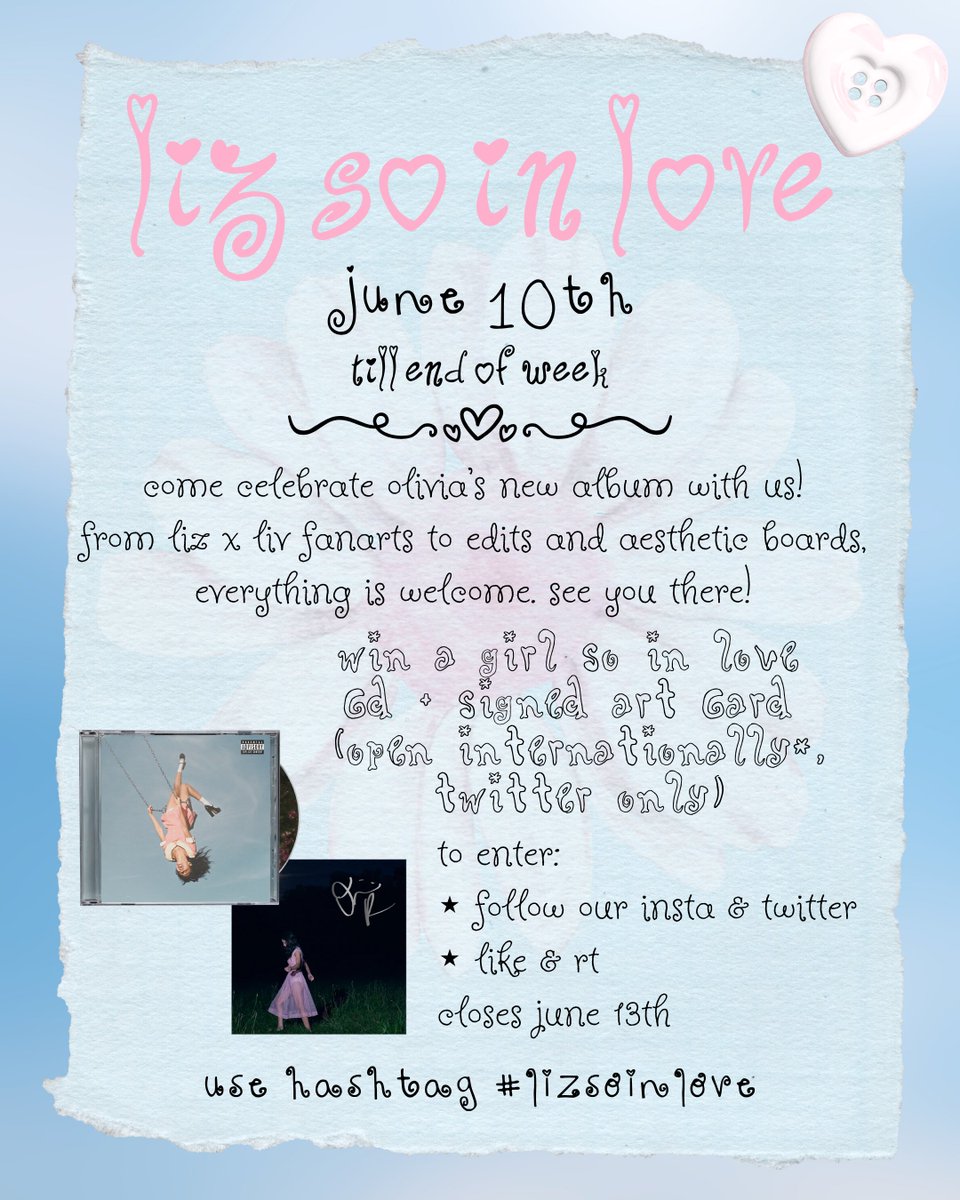 liz so in love
june 10th
till end of week
come celebrate olivia's new album with us!
from liz x liv fanarts to edits and aesthetic boards,
everything is welcome. see you there!
win a girl so in love
cd + signed art card
(open internationally*,
twitter only)
PARENTAL
ADVISORY
EXPLICIT CONTENT
to enter:
★ follow our insta & twitter
★ like & rt
closes june 13th
use hashtag #lizsoinlove